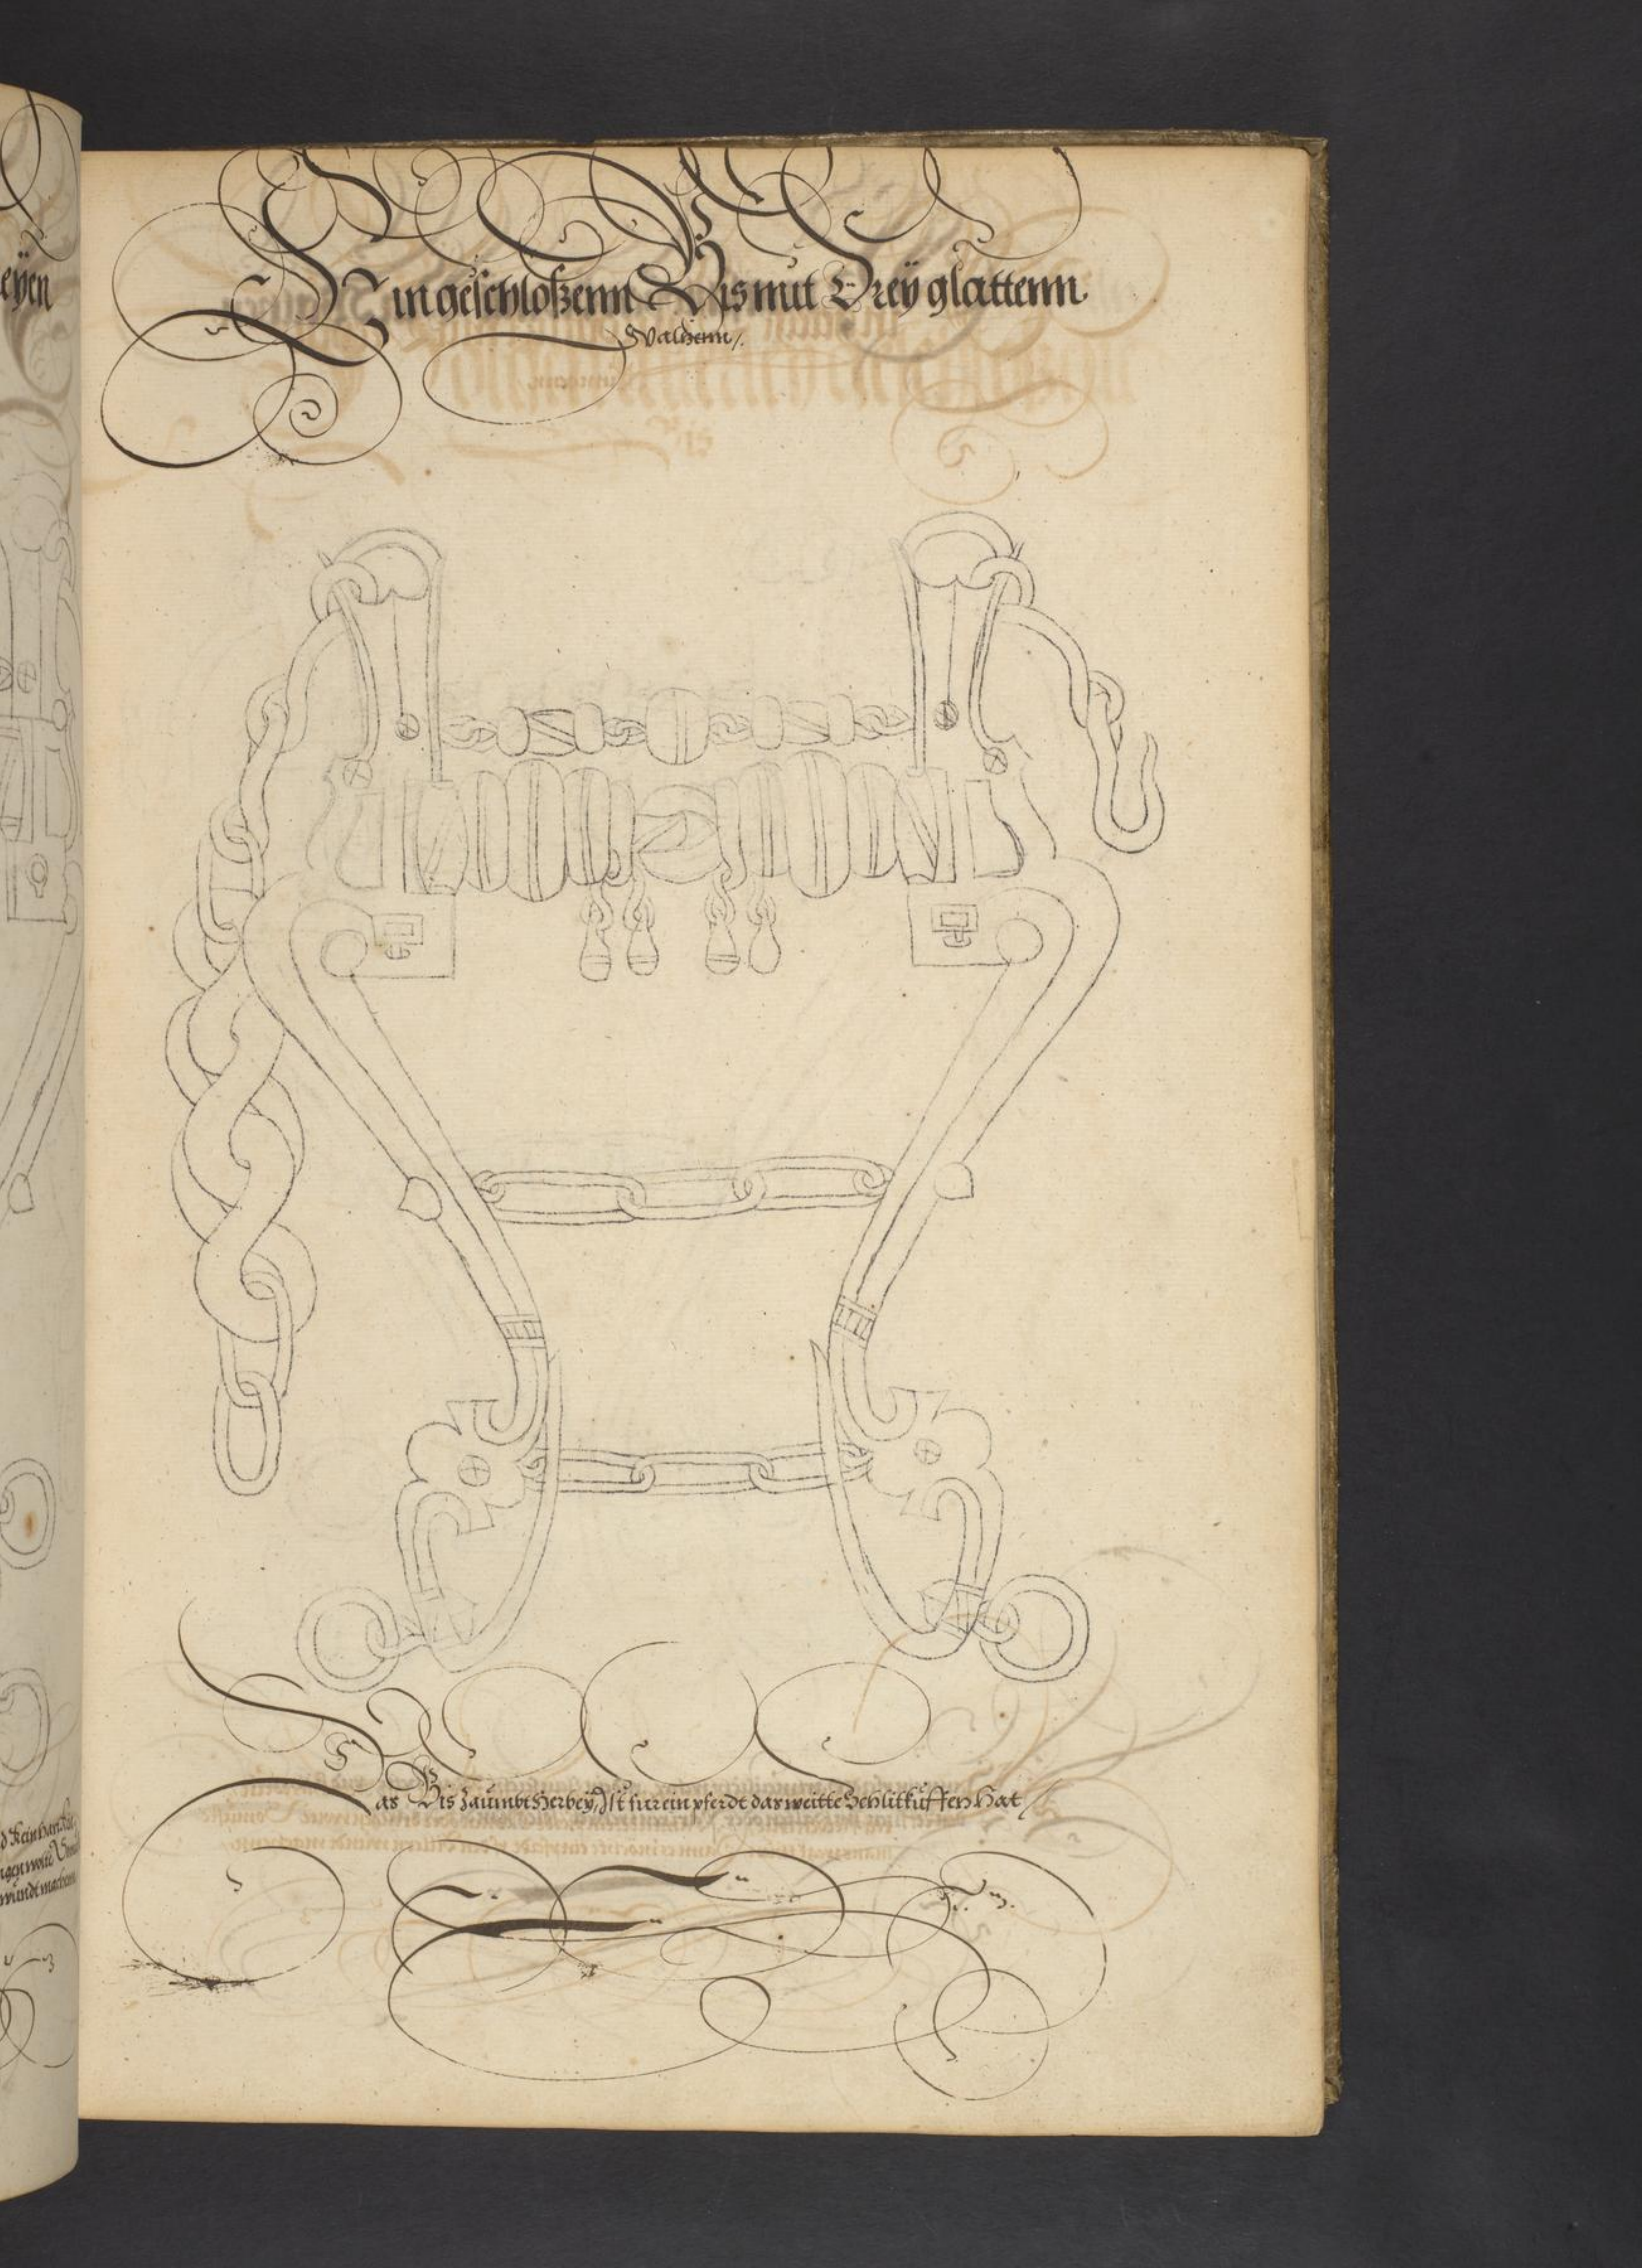 Ein geschloßenn Bis mit Dreÿ glattenn
Walzenn /.
Das Bis Zaŭmbt Herbeÿ, Ist fur ein pferdt das weitte Schlitkŭffen Hat /
eÿen